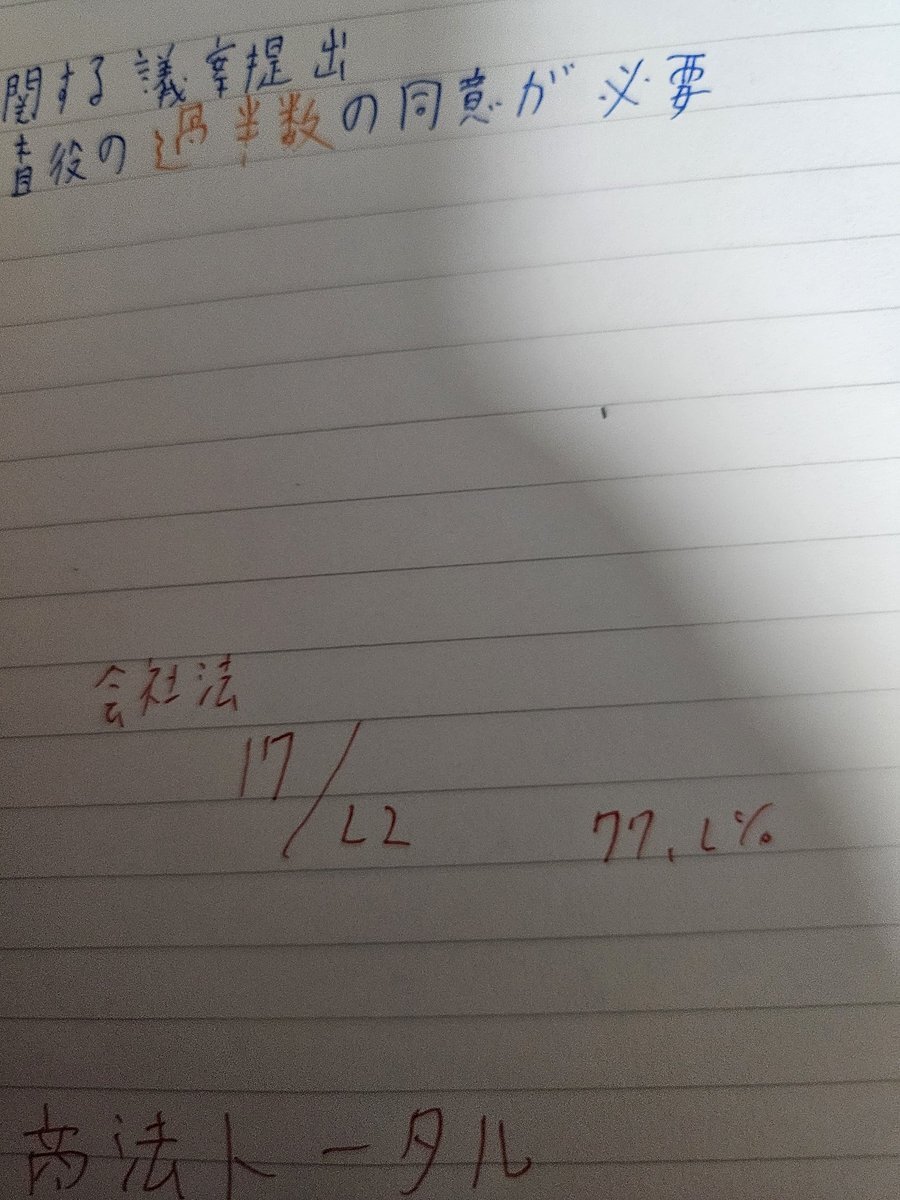 関する議案提出
査役の過半数の同意が必要
会社法
17/22
77.2%
商法トータル